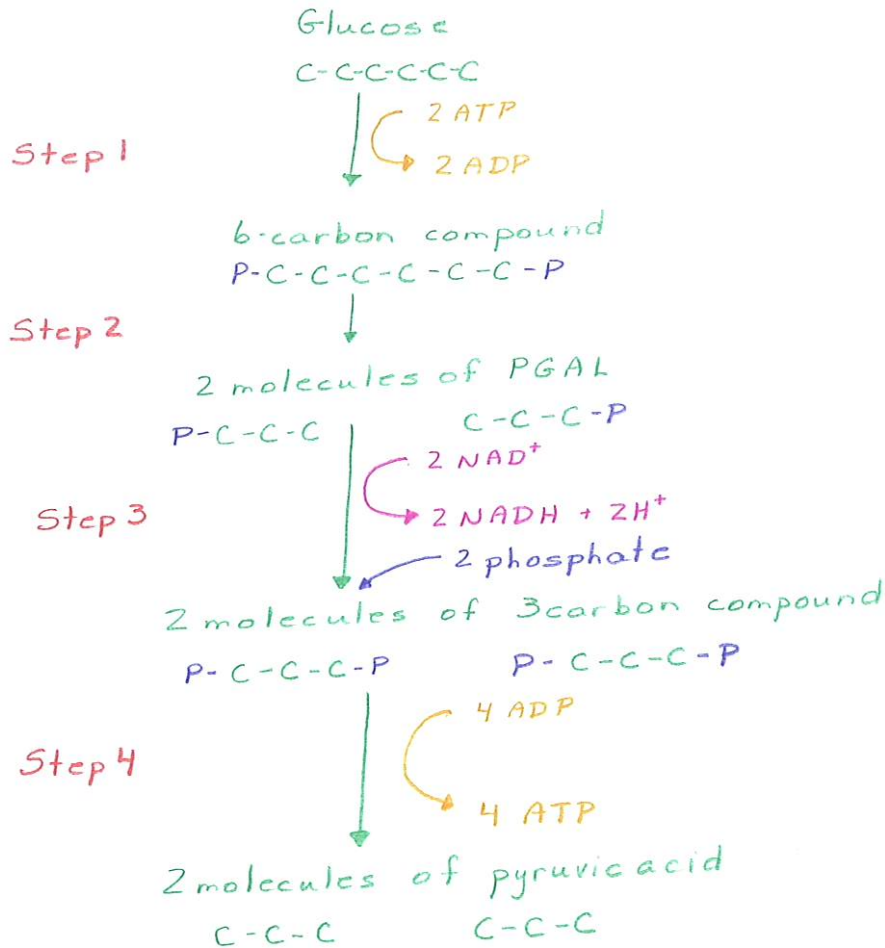 Glucose
C-C-C-C-C-C
2 ATP
Step 1
2 ADP
6-carbon compound
P-C-C-C-C-C-C-P
Step 2
2 molecules of PGAL
P-C-C-C C-C-C-P
2 NAD⁺
Step 3
2 NADH + 2H⁺
2 phosphate
2 molecules of 3carbon compound
P-C-C-C-P P-C-C-C-P
4 ADP
Step 4
4 ATP
2 molecules of pyruvic acid
C-C-C C-C-C